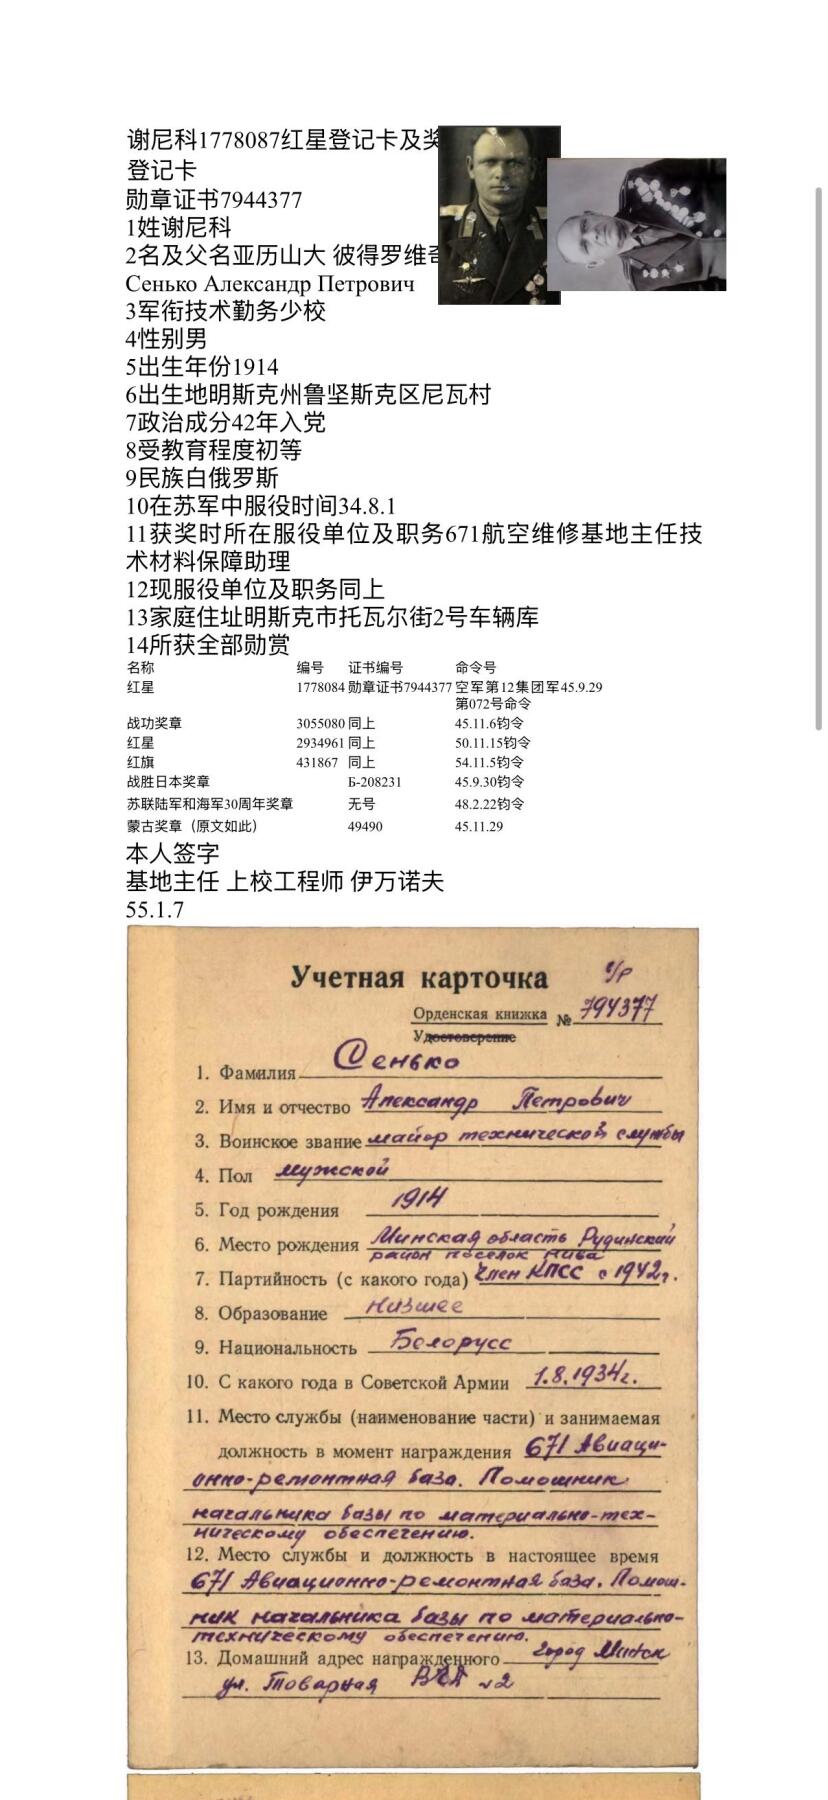 谢尼科1778087红星登记卡及奖
登记卡
勋章证书7944377
1姓谢尼科
2名及父名亚历山大 彼得罗维奇
Сенько Александр Петрович
3军衔技术勤务少校
4性别男
5出生年份1914
6出生地明斯克州鲁坚斯克区尼瓦村
7政治成分42年入党
8受教育程度初等
9民族白俄罗斯
10在苏军中服役时间34.8.1
11获奖时所在服役单位及职务671航空维修基地主任技
术材料保障助理
12现服役单位及职务同上
13家庭住址明斯克市托瓦尔街2号车辆库
14所获全部勋赏
名称 编号 证书编号 命令号
红星 1778084 勋章证书7944377 空军第12集团军45.9.29
第072号命令
战功奖章 3055080 同上 45.11.6钧令
红星 2934961 同上 50.11.15钧令
红旗 431867 同上 54.11.5钧令
战胜日本奖章 Б-208231 45.9.30钧令
苏联陆军和海军30周年奖章 无号 48.2.22钧令
蒙古奖章（原文如此） 49490 45.11.29
本人签字
基地主任 上校工程师 伊万诺夫
55.1.7
Учетная карточка
Орденская книжка № 794377
Удостоверение
1. Фамилия Сенько
2. Имя и отчество Александр Петрович
3. Воинское звание майор технической службы
4. Пол мужской
5. Год рождения 1914
6. Место рождения Минская область Рудинский
район поселок Нива
7. Партийность (с какого года) член КПСС с 1942г.
8. Образование низшее
9. Национальность Белорусс
10. С какого года в Советской Армии 1.8.1934г.
11. Место службы (наименование части) и занимаемая
должность в момент награждения 671 Авиаци-
онно-ремонтная база. Помошник
начальника базы по материально-тех-
ническому обеспечению.
12. Место службы и должность в настоящее время
671 Авиационно-ремонтная база. Помош-
ник начальника базы по материально-
техническому обеспечению.
13. Домашний адрес награжденного город Минск
ул. Товарная №2